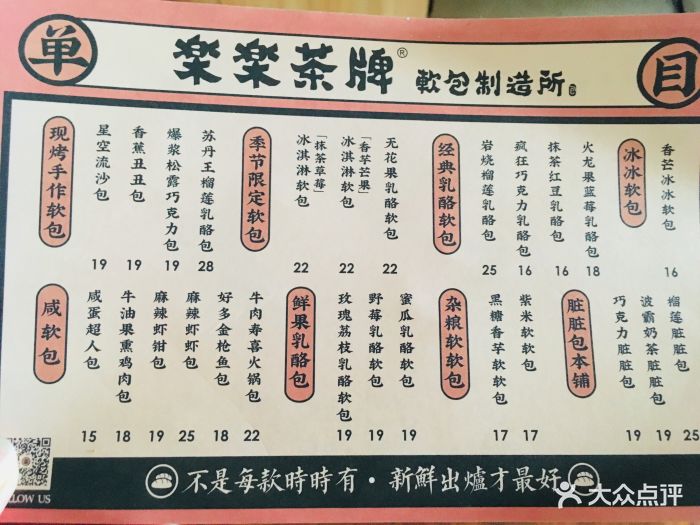 单 楽楽茶牌® 軟包制造所 目
现烤手作软包
星空流沙包 19
香蕉丑丑包 19
爆浆松露巧克力包 19
苏丹王榴莲乳酪包 28
季节限定软包
「抹茶草莓」冰淇淋软包 22
「香芋芒果」冰淇淋软包 22
无花果乳酪软包 22
经典乳酪软包
岩烧榴莲乳酪包 25
疯狂巧克力乳酪包 16
抹茶红豆乳酪包 16
火龙果蓝莓乳酪包 18
冰冰软包
香芒冰冰软包 16
咸软包
咸蛋超人包 15
牛油果熏鸡肉包 18
麻辣虾钳包 19
麻辣虾虾包 25
好多金枪鱼包 18
牛肉寿喜火锅包 22
鲜果乳酪包
玫瑰荔枝乳酪软包 19
野莓乳酪软包 19
蜜瓜乳酪软包 19
杂粮软软包
黑糖香芋软软包 17
紫米软软包 17
脏脏包本铺
巧克力脏脏包 19
波霸奶茶脏脏包 19
榴莲脏脏包 25
LLOW US
不是每款時時有·新鮮出爐才最好
大众点评